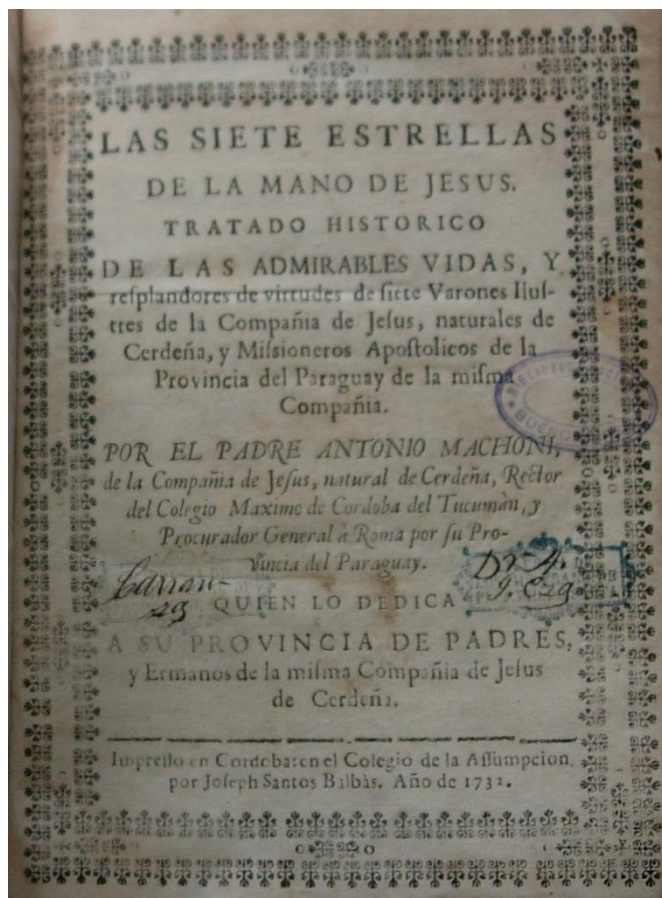 LAS SIETE ESTRELLAS
DE LA MANO DE JESUS.
TRATADO HISTORICO
DE LAS ADMIRABLES VIDAS, Y
resplandores de virtudes de siete Varones Ilus-
tres de la Compañia de Jesus, naturales de
Cerdeña, y Missioneros Apostolicos de la
Provincia del Paraguay de la misma
Compañia.
POR EL PADRE ANTONIO MACHONI,
de la Compañia de Jesus, natural de Cerdeña, Rector
del Colegio Maximo de Cordoba del Tucumàn, y
Procurador General à Roma por su Pro-
vincia del Paraguay.
Carran-
QUIEN LO DEDICA
A SU PROVINCIA DE PADRES,
y Ermanos de la misma Compañia de Jesus
de Cerdeña.
Impresso en Cordoba: en el Colegio de la Assumpcion,
por Joseph Santos Balbàs. Año de 1732.